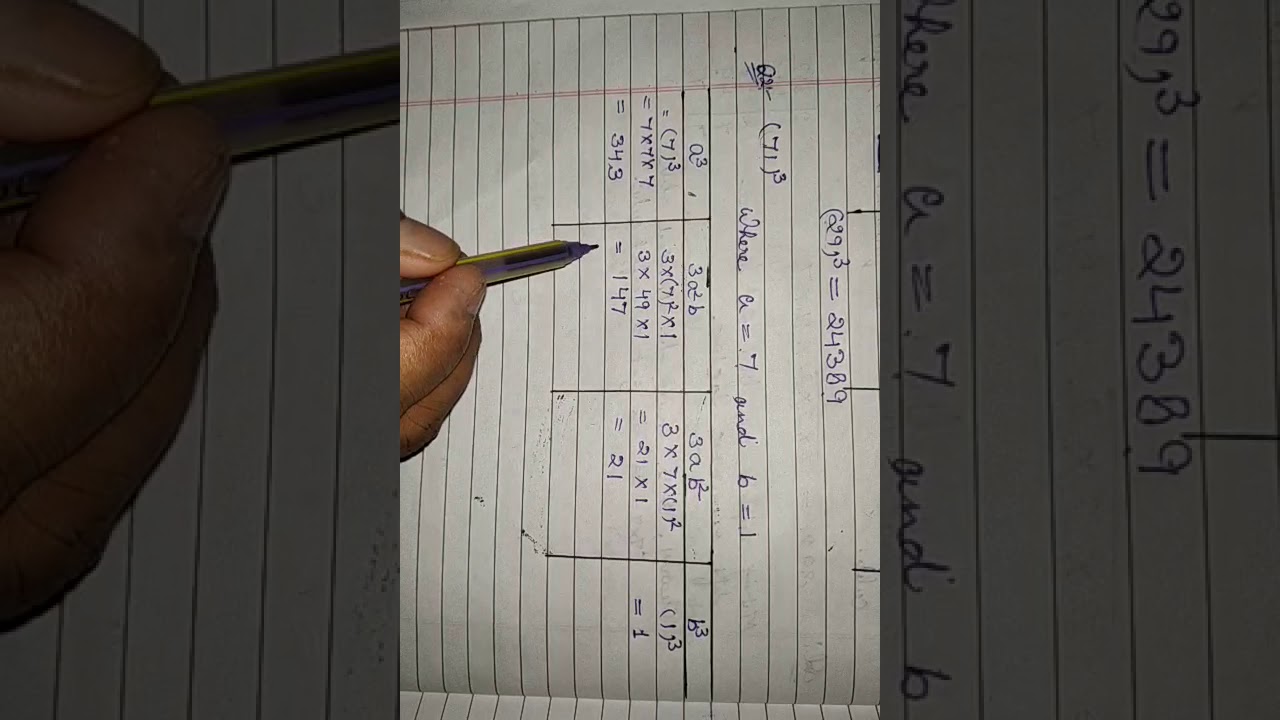 (29)³ = 24389
Q2:- (71)³
Where a = 7 and b = 1
a³ 3a²b 3ab² b³
= (7)³ 3×(7)²×1 3×7×(1)² (1)³
= 7×7×7 3×49×1 = 21×1 = 1
= 343 = 147 = 21
29)³ = 24389
where a = 7 and b